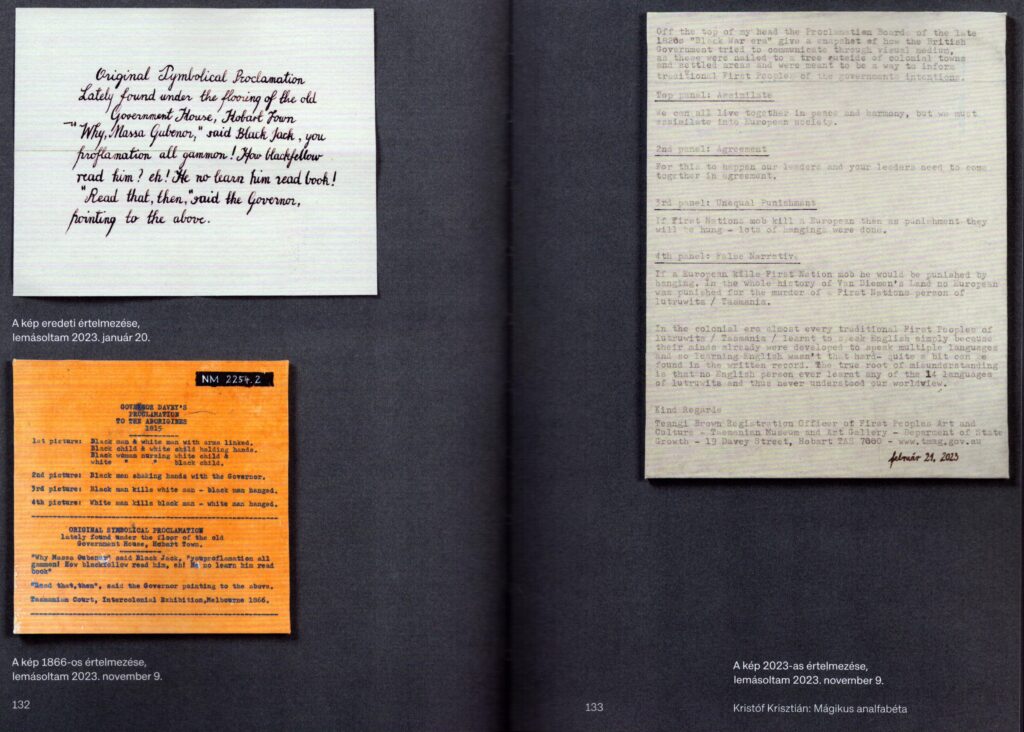 Original Symbolical Proclamation
Lately found under the flooring of the old
Government House, Hobart Town
"Why, Massa Gubenor," said Black Jack, you
proflamation all gammon! How blackfellow
read him? eh! He no learn him read book!
"Read that, then," said the Governor,
pointing to the above.
A kép eredeti értelmezése,
lemásoltam 2023. január 20.
NM 2254.2
GOVERNOR DAVEY'S
PROCLAMATION
TO THE ABORIGINES
1815
1st picture: Black man & white man with arms linked.
Black child & white child holding hands.
Black woman nursing white child &
white " " black child.
2nd picture: Black man shaking hands with the Governor.
3rd picture: Black man kills white man - black man hanged.
4th picture: White man kills black man - white man hanged.
ORIGINAL SYMBOLICAL PROCLAMATION
lately found under the floor of the old
Government House, Hobart Town.
"Why Massa Gubenor" said Black Jack, "youproflamation all
gammon! How blackfellow read him, eh! He no learn him read
book"
"Read that,then", said the Governor pointing to the above.
Tasmanian Court, Intercolonial Exhibition,Melbourne 1866.
A kép 1866-os értelmezése,
lemásoltam 2023. november 9.
132
Off the top of my head the Proclamation Boards of the late
1820s "Black War era" give a snapshot of how the British
Government tried to communicate through visual medium,
as these were nailed to a tree outside of colonial towns
and settled areas and were meant to be a way to inform
traditional First Peoples of the governments intentions.
Top panel: Assimilate
We can all live together in peace and harmony, but we must
assimilate into European society.
2nd panel: Agreement
For this to happen our leaders and your leaders need to come
together in agreement.
3rd panel: Unequal Punishment
If First Nations mob kill a European then as punishment they
will be hung - lots of hangings were done.
4th panel: False Narrative
If a European kills First Nation mob he would be punished by
hanging. In the whole history of Van Diemen's Land no European
was punished for the murder of a First Nations person of
lutruwita / Tasmania.
In the colonial era almost every traditional First Peoples of
lutruwita / Tasmania / learnt to speak English simply because
their minds already were developed to speak multiple languages
and so learning English wasn't that hard- quite a bit can be
found in the written record. The true root of misunderstanding
is that no English person ever learnt any of the 14 languages
of lutruwita and thus never understood our worldview.
Kind Regards
Teangi Brown Registration Officer of First Peoples Art and
Culture - Tasmanian Museum and Art Gallery - Deparment of State
Growth - 19 Davey Street, Hobart TAS 7000 - www.tmag.gov.au
február 21. 2023
A kép 2023-as értelmezése,
lemásoltam 2023. november 9.
133
Kristóf Krisztián: Mágikus analfabéta